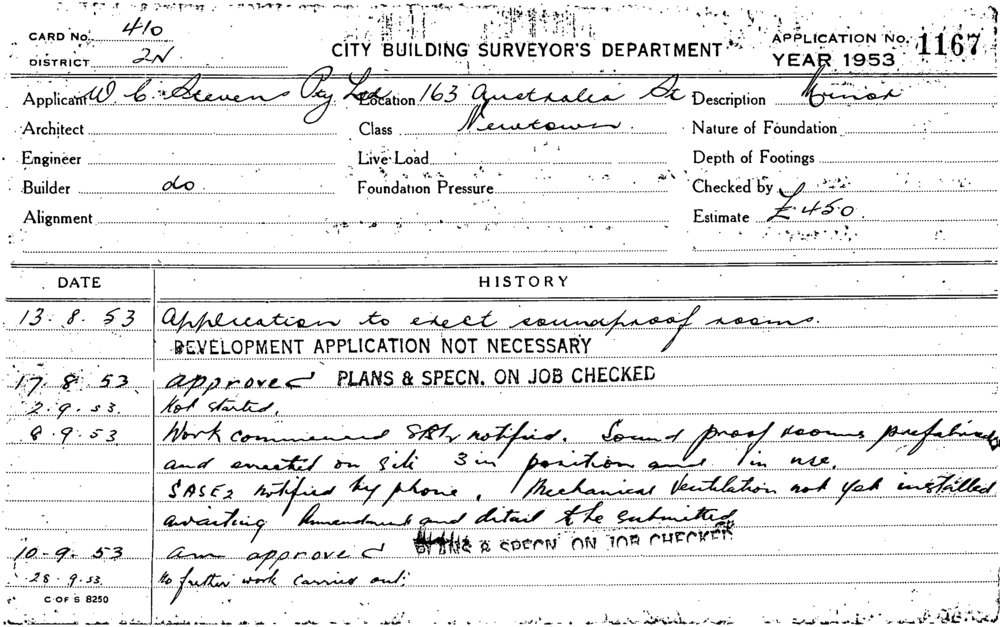 CARD No. 410
DISTRICT 2N
CITY BUILDING SURVEYOR'S DEPARTMENT
APPLICATION No. 1167
YEAR 1953
Applicant W. C. Stevens Pty Ltd Location 163 Australia St Description Minor
Architect Class Newtown Nature of Foundation
Engineer Live Load Depth of Footings
Builder do Foundation Pressure Checked by
Alignment Estimate £450
DATE HISTORY
13.8.53 Application to erect soundproof rooms.
DEVELOPMENT APPLICATION NOT NECESSARY
17.8.53 approved PLANS & SPECN. ON JOB CHECKED
2.9.53. Not started.
8.9.53 Work commenced notified. Sound proof rooms prefabricated
and erected on site 3 in position and 1 in use.
notified by phone. Mechanical Ventilation not yet installed
awaiting Amendment and detail to be submitted
10.9.53 am approved PLANS & SPECN ON JOB CHECKED
28.9.53. No further work carried out.
C OF S 8250